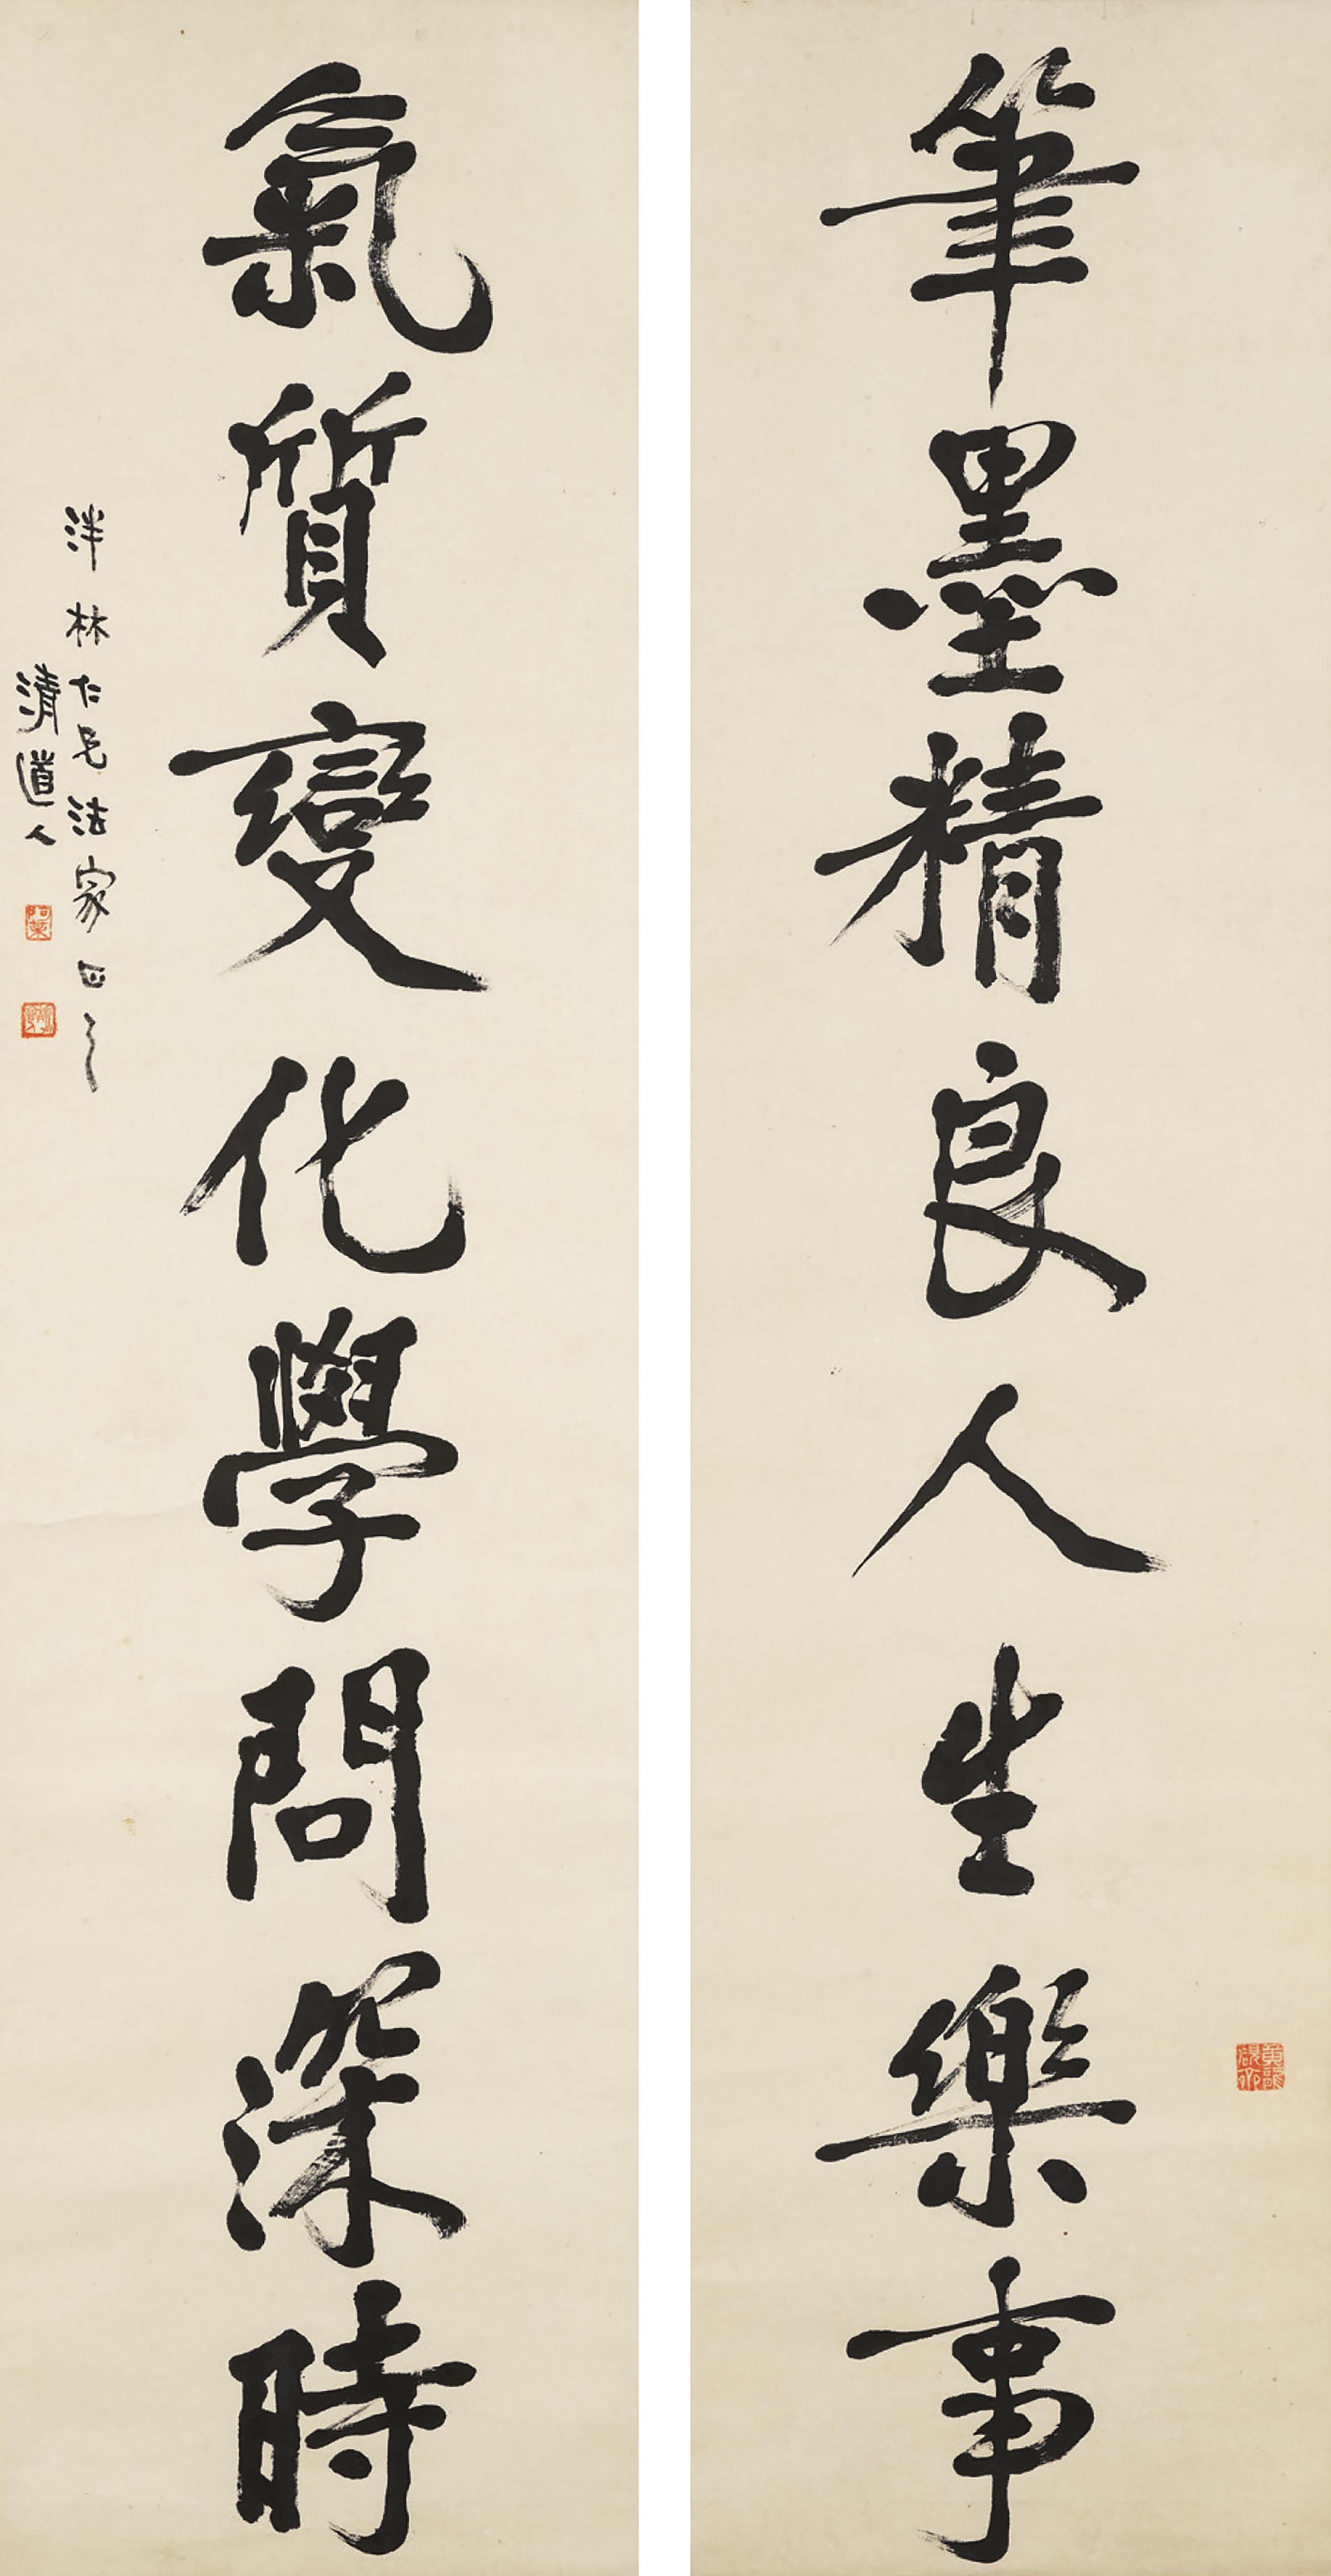 筆墨精良人生樂事
氣質變化學問深時
泮林仁兄法家正之
清道人